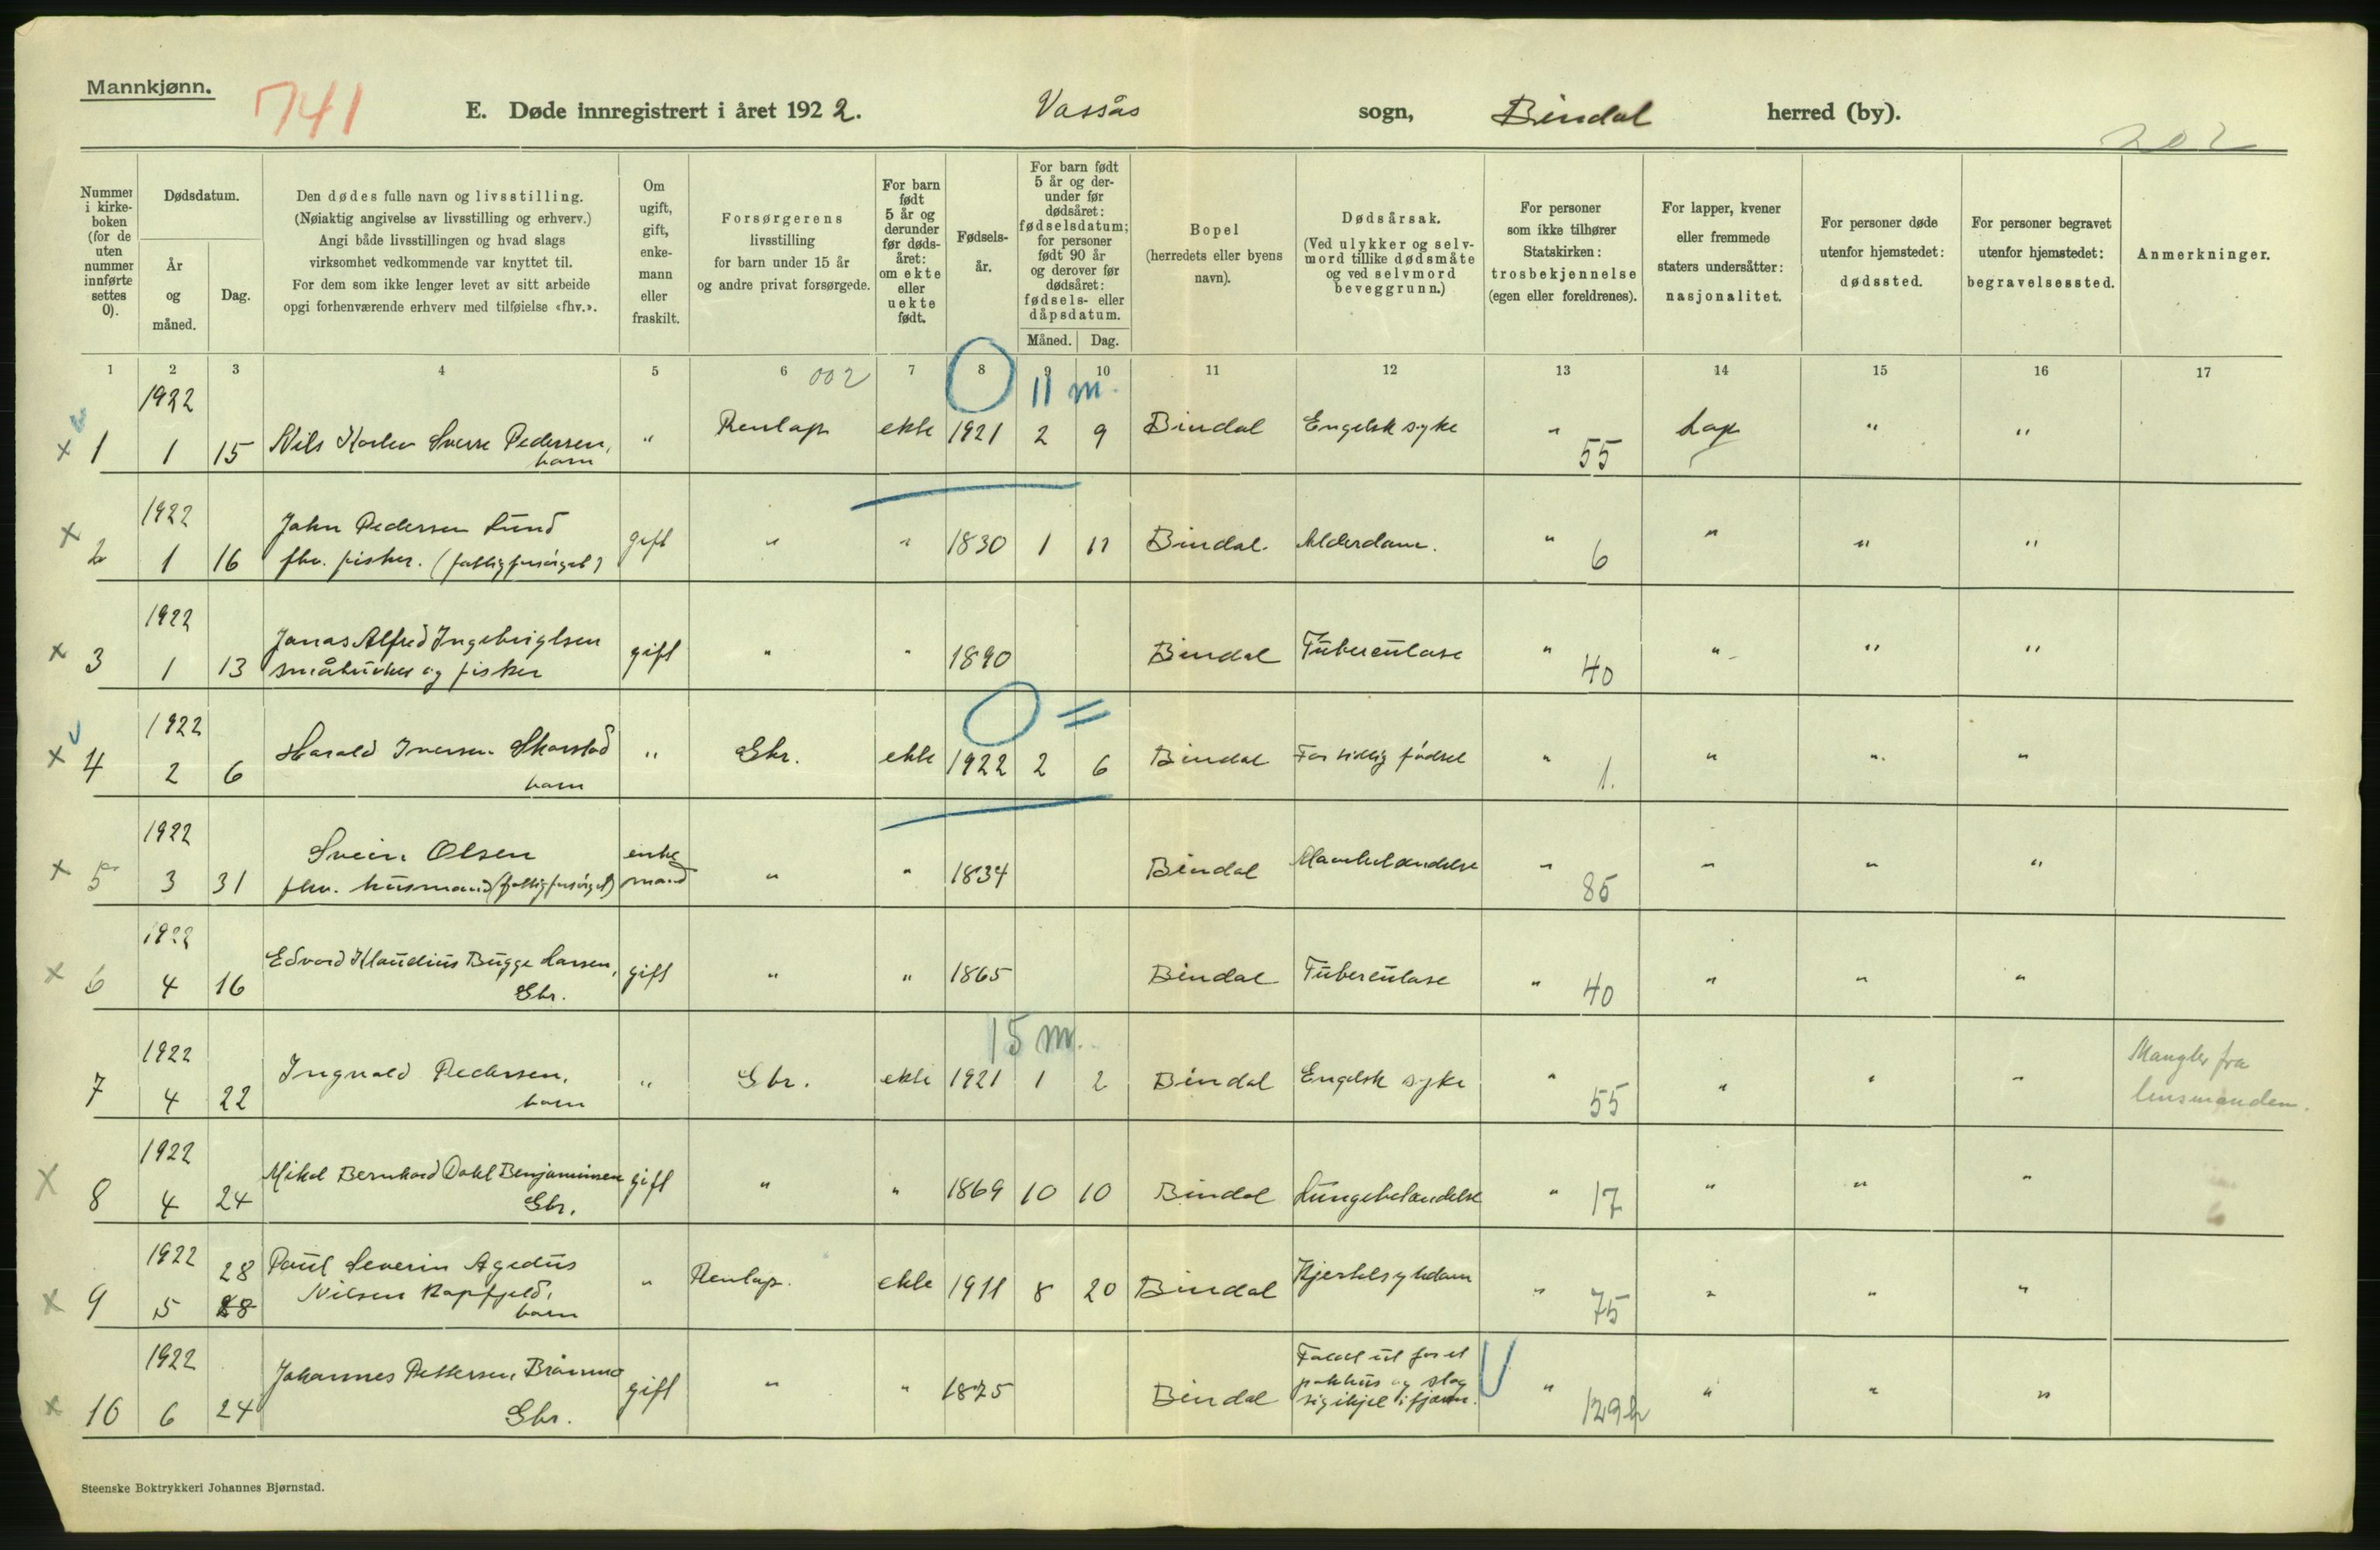 Mannkjønn.
741
E. Døde innregistrert i året 1922. Vassås sogn, Bindal herred (by).
202
Nummer i kirkeboken (for de uten nummer innførte settes 0).
Dødsdatum.
År og måned.
Dag.
Den dødes fulle navn og livsstilling.
(Nøiaktig angivelse av livsstilling og erhverv.)
Angi både livsstillingen og hvad slags
virksomhet vedkommende var knyttet til.
For dem som ikke lenger levet av sitt arbeide
opgi forhenværende erhverv med tilføielse «fhv.».
Om ugift, gift, enkemann eller fraskilt.
Forsørgerens
livsstilling
for barn under 15 år
og andre privat forsørgede.
For barn født 5 år og derunder før dødsåret: om ekte eller uekte født.
Fødselsår.
For barn født 5 år og derunder før dødsåret: fødselsdatum; for personer født 90 år og derover før dødsåret: fødsels- eller dåpsdatum.
Måned. Dag.
Bopel
(herredets eller byens
navn).
Dødsårsak.
(Ved ulykker og selvmord tillike dødsmåte
og ved selvmord
beveggrunn.)
For personer
som ikke tilhører
Statskirken:
trosbekjennelse
(egen eller foreldrenes).
For lapper, kvener
eller fremmede
staters undersåtter:
nasjonalitet.
For personer døde
utenfor hjemstedet:
dødssted.
For personer begravet
utenfor hjemstedet:
begravelsessted.
Anmerkninger.
1 2 3 4 5 6 7 8 9 10 11 12 13 14 15 16 17
002 0 11 m.
1922
x 1 1 15 Nils Sverre Pedersen, " Renlap ekte 1921 2 9 Bindal Engelsk syke " 55 Lap " "
barn
1922
x 2 1 16 Jahn Pedersen Lund gift " " 1830 1 11 Bindal. Alderdom. " 6 " " "
fhv. fisker. (fattigforsørget)
1922
x 3 1 13 Jonas Alfred Ingebrigtsen gift " " 1890 Bindal Tuberculose " 40 " " "
småbruker og fisker
0 =
1922
x 4 2 6 Harald Iversen Skarstad " Gbr. ekte 1922 2 6 Bindal For tidlig fødsel " 1. " " "
barn
1922
x 5 3 31 Svein Olsen enke " " 1834 Bindal " 85 " " "
fhv. husmand (fattigforsørget) mand
1922
x 6 4 16 Edvard Klaudius Bugge Larsen, gift " " 1865 Bindal Tuberculose " 40 " " "
Gbr.
15 m.
1922
7 4 22 Ingvald Pedersen, " Gbr. ekte 1921 1 2 Bindal Engelsk syke " 55 " " " Mangler fra
barn lensmanden.
1922
x 8 4 24 Mikal Bernhard Dahl Benjaminsen gift " " 1869 10 10 Bindal Lungebetændelse " 17 " " "
Gbr.
1922
x 9 5 28 Paul Severin Agedus " Renlap. ekte 1911 8 20 Bindal Hjertesykdom " 75 " " "
Nilsen Kapfjeld,
barn
1922
x 10 6 24 Johannes Pettersen gift " " 1875 Bindal Faldt ut for et " " " "
pakhus og slog
sig ihjel i fjæren.
Gbr.
Steenske Boktrykkeri Johannes Bjørnstad.